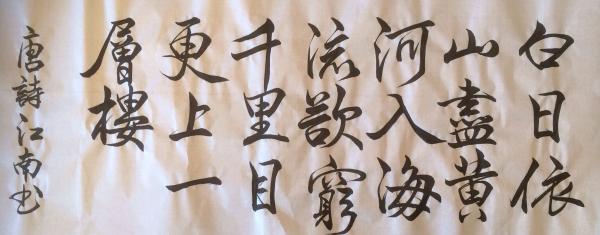 白日依
山盡黄
河入海
流欲窮
千里目
更上一
層樓
唐詩江南书